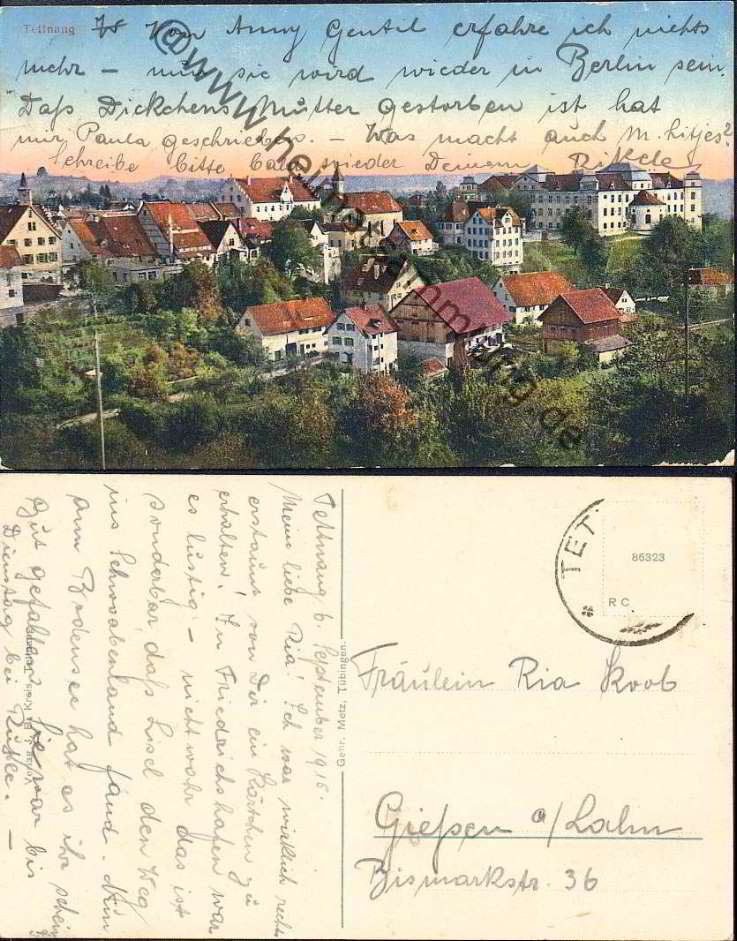 Tettnang
Von Anny Gentil erfahre ich nichts
mehr – nur sie wird wieder in Berlin sein.
Daß Dickchens Mutter gestorben ist hat
mir Paula geschrieben. – Was macht auch M. hitjes?
Schreibe bitte bald wieder Deinem Rikele
@www.heimatsammlung.de
Tettnang 6. September 1916.
Meine liebe Ria! Ich war wirklich recht
erstaunt von Dir ein Kärtchen zu
erhalten! In Friedrichshafen war
es lustig – nicht wahr das ist
sonderbar, daß Lisel den Weg
ins Schwabenland fand. Nun
am Bodensee hat es ihr schein
gut gefallen. Sie war bis
Dienstag bei Rikele. –
Gebr. Metz, Tübingen.
TET
86323
R C
Fräulein Ria Koob
Gießen a/Lahn
Bismarkstr. 36